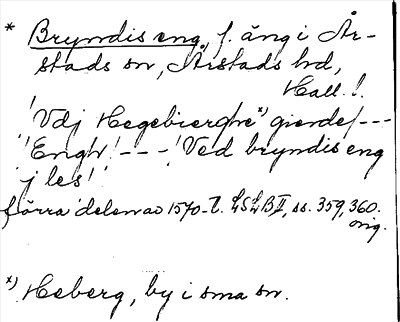 * Bryndis eng, f. äng i År-
stads sn, Årstads hd,
Hall.!
"Vdj Hegebierghe x) gierde/ ---
"Engh! --- "Ved bryndis eng
j les"
förra delen av 1570-t. LSLB II, ss. 359, 360.
orig.
x) Heberg, by i sma sn.